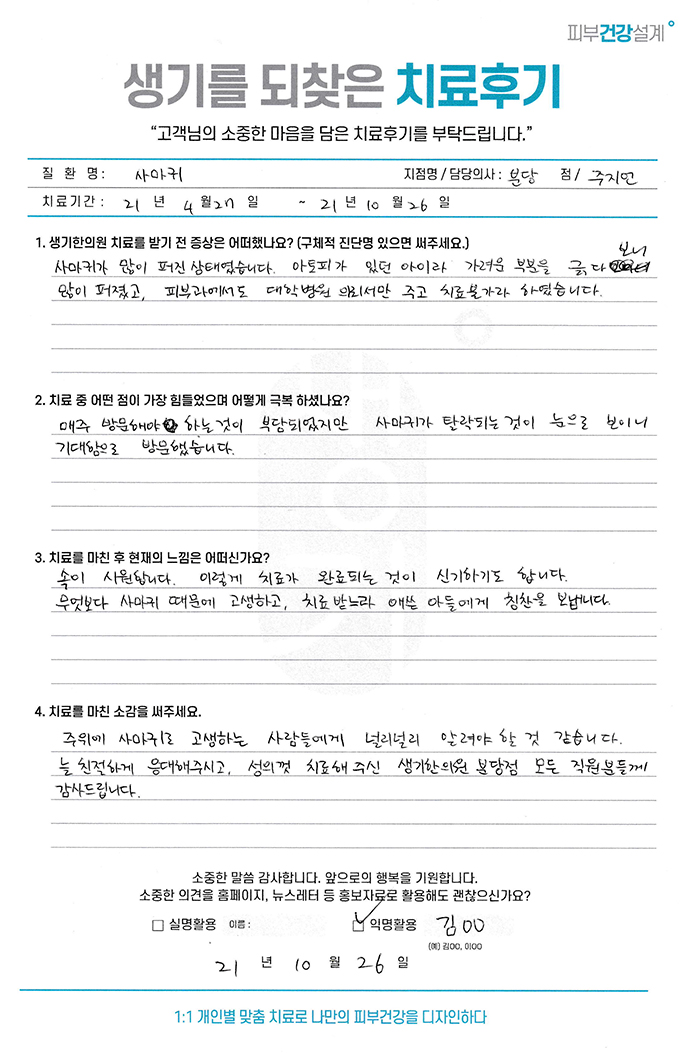 피부건강설계
생기를 되찾은 치료후기
“고객님의 소중한 마음을 담은 치료후기를 부탁드립니다.”
질 환 명 : 사마귀 지점명 / 담당의사 : 분당 점 / 주지언
치료기간 : 21 년 4 월 27 일 ~ 21 년 10 월 26 일
1. 생기한의원 치료를 받기 전 증상은 어떠했나요? (구체적 진단명 있으면 써주세요.)
사마귀가 많이 퍼진 상태였습니다. 아토피가 있던 아이라 가려운 부분을 긁다 보니
많이 퍼졌고, 피부과에서도 대학병원 의뢰서만 주고 치료불가라 하였습니다.
2. 치료 중 어떤 점이 가장 힘들었으며 어떻게 극복 하셨나요?
매주 방문해야 하는것이 부담되었지만 사마귀가 탈락되는것이 눈으로 보이니
기대함으로 방문했습니다.
3. 치료를 마친 후 현재의 느낌은 어떠신가요?
속이 시원합니다. 이렇게 치료가 완료되는 것이 신기하기도 합니다.
무엇보다 사마귀 때문에 고생하고, 치료받느라 애쓴 아들에게 칭찬을 보냅니다.
4. 치료를 마친 소감을 써주세요.
주위에 사마귀로 고생하는 사람들에게 널리널리 알려야 할 것 같습니다.
늘 친절하게 응대해주시고, 성의껏 치료해 주신 생기한의원 분당점 모든 직원분들께
감사드립니다.
소중한 말씀 감사합니다. 앞으로의 행복을 기원합니다.
소중한 의견을 홈페이지, 뉴스레터 등 홍보자료로 활용해도 괜찮으신가요?
실명활용 이름 : 익명활용 김OO
(예) 김OO, 이OO
21 년 10 월 26 일
1:1 개인별 맞춤 치료로 나만의 피부건강을 디자인하다